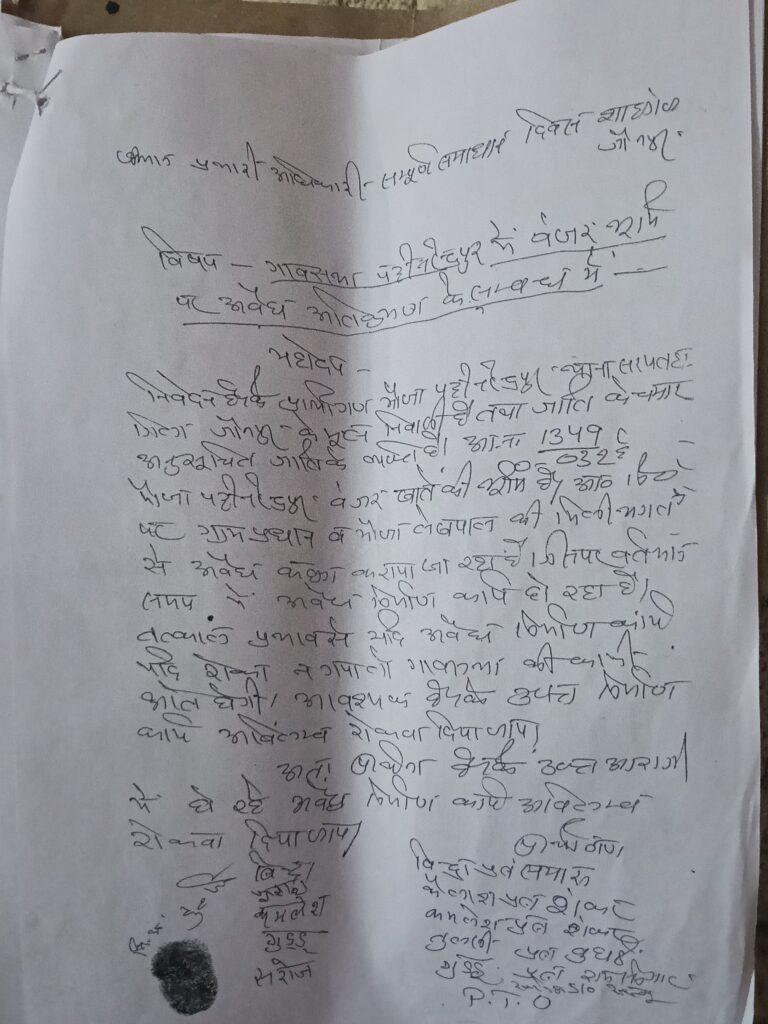 श्रीमान प्रभारी अधिकारी - सम्पूर्ण समाधान दिवस शाहगंज
जौनपुर
विषय - गांवसभा पट्टीनरेन्द्रपुर में बंजर भूमि
पर अवैध अतिक्रमण के सम्बन्ध में -
महोदय -
निवेदन है कि प्रार्थीगण मौजा पट्टीनरेन्द्रपुर थाना सरपतहा
जिला जौनपुर के मूल निवासी हैं तथा जाति के चमार
अनुसूचित जाति के व्यक्ति हैं। आ.नं. 1349
मौजा पट्टीनरेन्द्रपुर बंजर खाते की भूमि है,
पर ग्राम प्रधान व मौजा लेखपाल की मिली भगत
से अवैध कब्जा कराया जा रहा है। जिसपर वर्तमान
समय में अवैध निर्माण कार्य हो रहा है।
तत्काल प्रभाव से यदि अवैध निर्माण कार्य
यदि रोका न गया तो गांवसभा की काफी
क्षति होगी। आवश्यक है कि उक्त निर्माण
कार्य अविलम्ब रोकवा दिया जाय।
अतः प्रार्थना है कि उक्त आराजी
में हो रहे अवैध निर्माण कार्य अविलम्ब
रोकवा दिया जाय।
प्रार्थीगण
बिन्द्रा
कमलेश
गुड्डू
सरोज
बिन्द्रा पुत्र
कैलाश पुत्र
कमलेश पुत्र
पुत्र
गुड्डू पुत्र
P.T.O